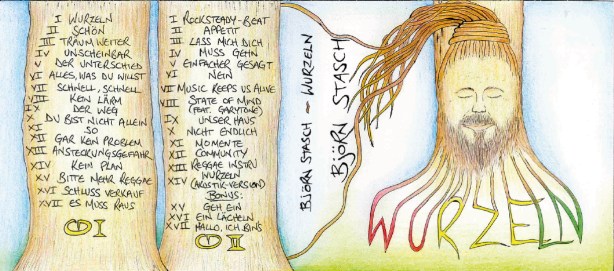 I WURZELN
II SCHÖN
III TRAUM WEITER
IV UNSCHEINBAR
V DER UNTERSCHIED
VI ALLES, WAS DU WILLST
VII SCHNELL, SCHNELL
VIII KEIN LÄRM
IX DER WEG
X DU BIST NICHT ALLEIN
XI SO
XII GAR KEIN PROBLEM
XIII ANSTECKUNGSGEFAHR
XIV KEIN PLAN
XV BITTE MEHR REGGAE
XVI SCHLUSS VERKAUF
XVII ES MUSS RAUS
CD I
I ROCKSTEADY-BEAT
II APPETIT
III LASS MICH DICH
IV MUSS GEHN
V EINFACHER GESAGT
VI NEIN
VII MUSIC KEEPS US ALIVE
VIII STATE OF MIND
(FEAT. GARYTONE)
IX UNSER HAUS
X NICHT ENDLICH
XI MOMENTE
XII COMMUNITY
XIII REGGAE INSTRU
XIV WURZELN
(AKUSTIK-VERSION)
BONUS:
XV GEH EIN
XVI EIN LÄCHELN
XVII HALLO, ICH BINS
CD II
BJÖRN STASCH – WURZELN
BJÖRN STASCH
WURZELN